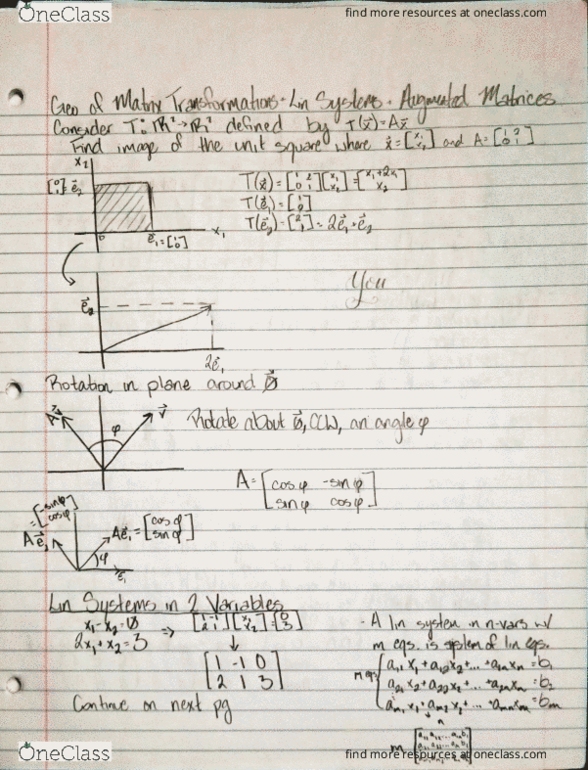 OneClass
find more resources at oneclass.com
Geo of Matrix Transformations · Lin Systems · Augmented Matrices
Consider T: ℝ²→ℝ² defined by T(x⃗)=Ax⃗
Find image of the unit square where x⃗=[x₁ x₂] and A=[1 2 0 1]
x₂
[0 1]=e⃗₂
0
e⃗₁=[1 0]
x₁
T(x⃗)=[1 2 0 1][x₁ x₂]=[x₁+2x₂ x₂]
T(e⃗₁)=[1 0]
T(e⃗₂)=[2 1]=2e⃗₁+e⃗₂
You
e⃗₂
2e⃗₁
Rotation in plane around 0⃗
v⃗
φ
Rotate about 0⃗, CCW, an angle φ
A=[cosφ -sinφ
sinφ cosφ]
=[-sinφ cosφ]
Ae⃗₂
Ae⃗₁=[cosφ sinφ]
φ
e⃗₁
Lin Systems in 2 Variables
x₁-x₂=0
2x₁+x₂=3
⇒ [1 -1 2 1][x₁ x₂]=[0 3]
↓
[1 -1 0
2 1 3]
Continue on next pg
- A lin system in n-vars w/
m eqs. is system of lin eqs.
m eqs
a₁₁x₁+a₁₂x₂+...+a₁ₙxₙ=b₁
a₂₁x₂+a₂₂x₂+...+a₂ₙxₙ=b₂
aₘ₁x₁+aₘ₂x₂+...+aₘₙxₙ=bₘ
n
m
OneClass
find more resources at oneclass.com